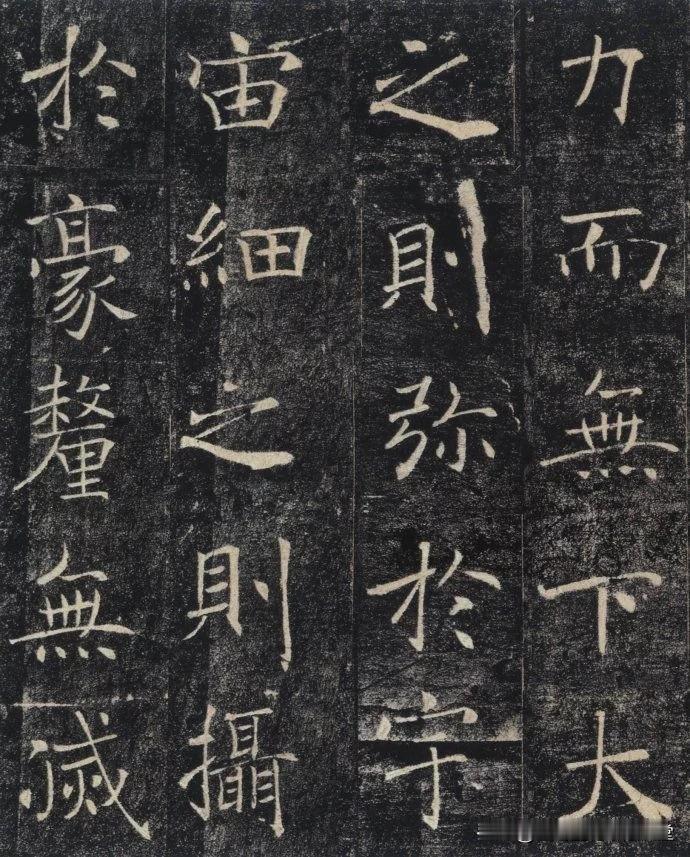 力而無下大
之則弥於宇
宙細之則攝
於豪釐無滅